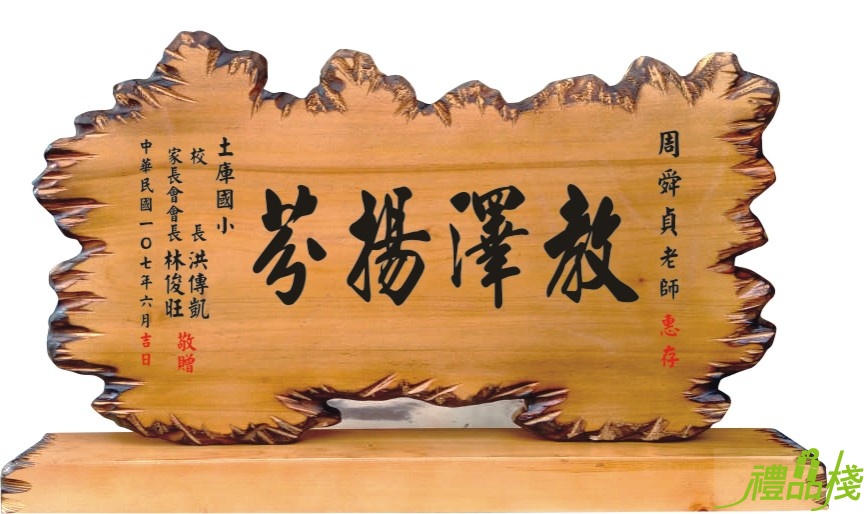 周舜貞老師 惠存
教澤揚芬
土庫國小
校長 洪傳凱
家長會會長 林俊旺
敬贈
中華民國一〇七年六月吉日
禮品棧